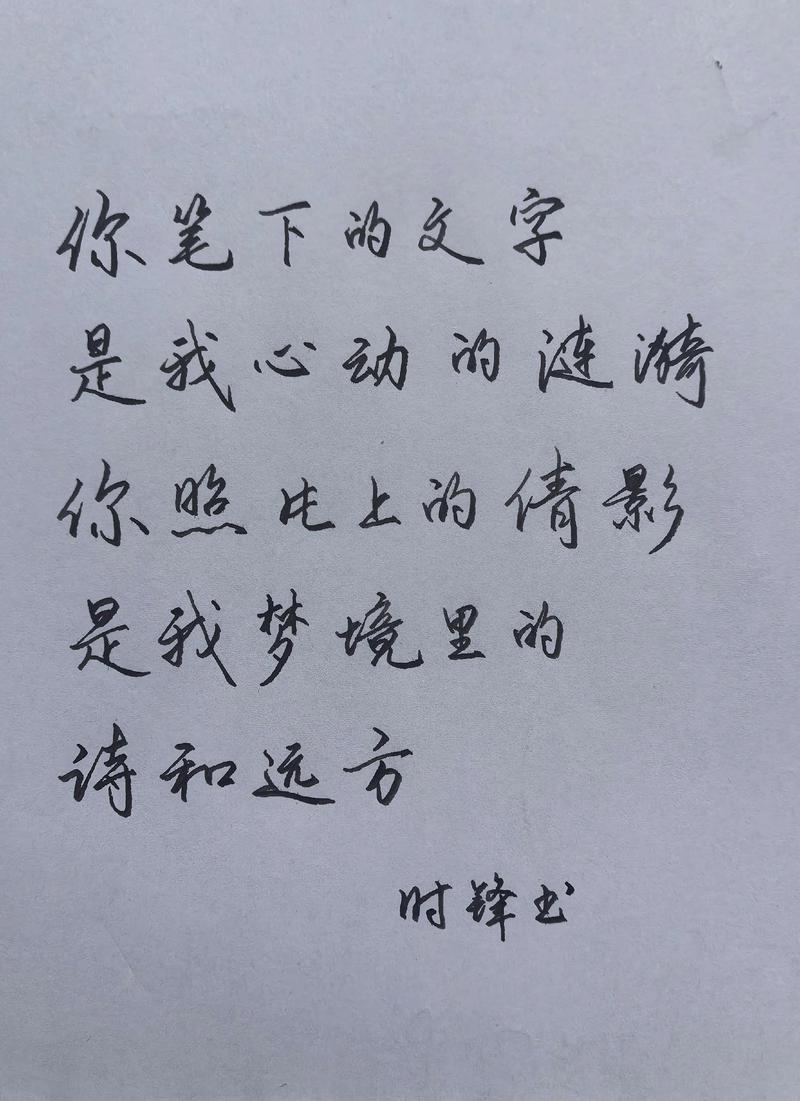 你笔下的文字
是我心动的涟漪
你照片上的倩影
是我梦境里的
诗和远方
时锋书